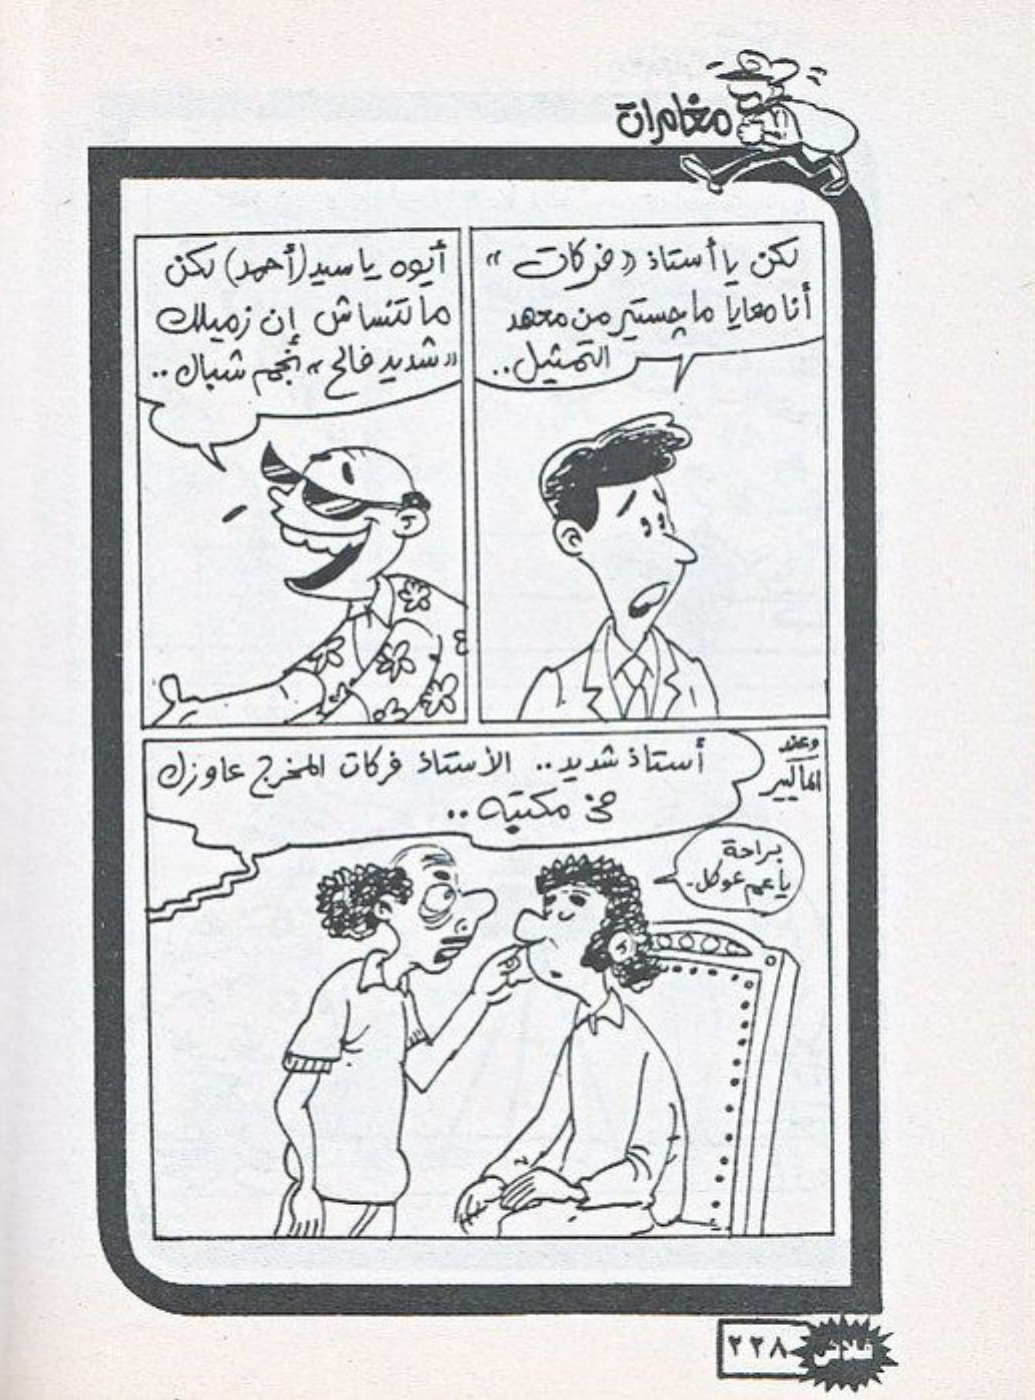 مغامرات
لكن يا أستاذ «فركات»
أنا معايا ماچستير من معهد
التمثيل..
أيوه يا سيد (أحمد) لكن
ما تنساش إن زميلك
«شديد فالح» نجم شباك..
وعند
الماكيير
أستاذ شديد.. الأستاذ فركات المخرج عاوزك
في مكتبه..
براحة
يا عم عوكل..
فلاش
٢٢٨